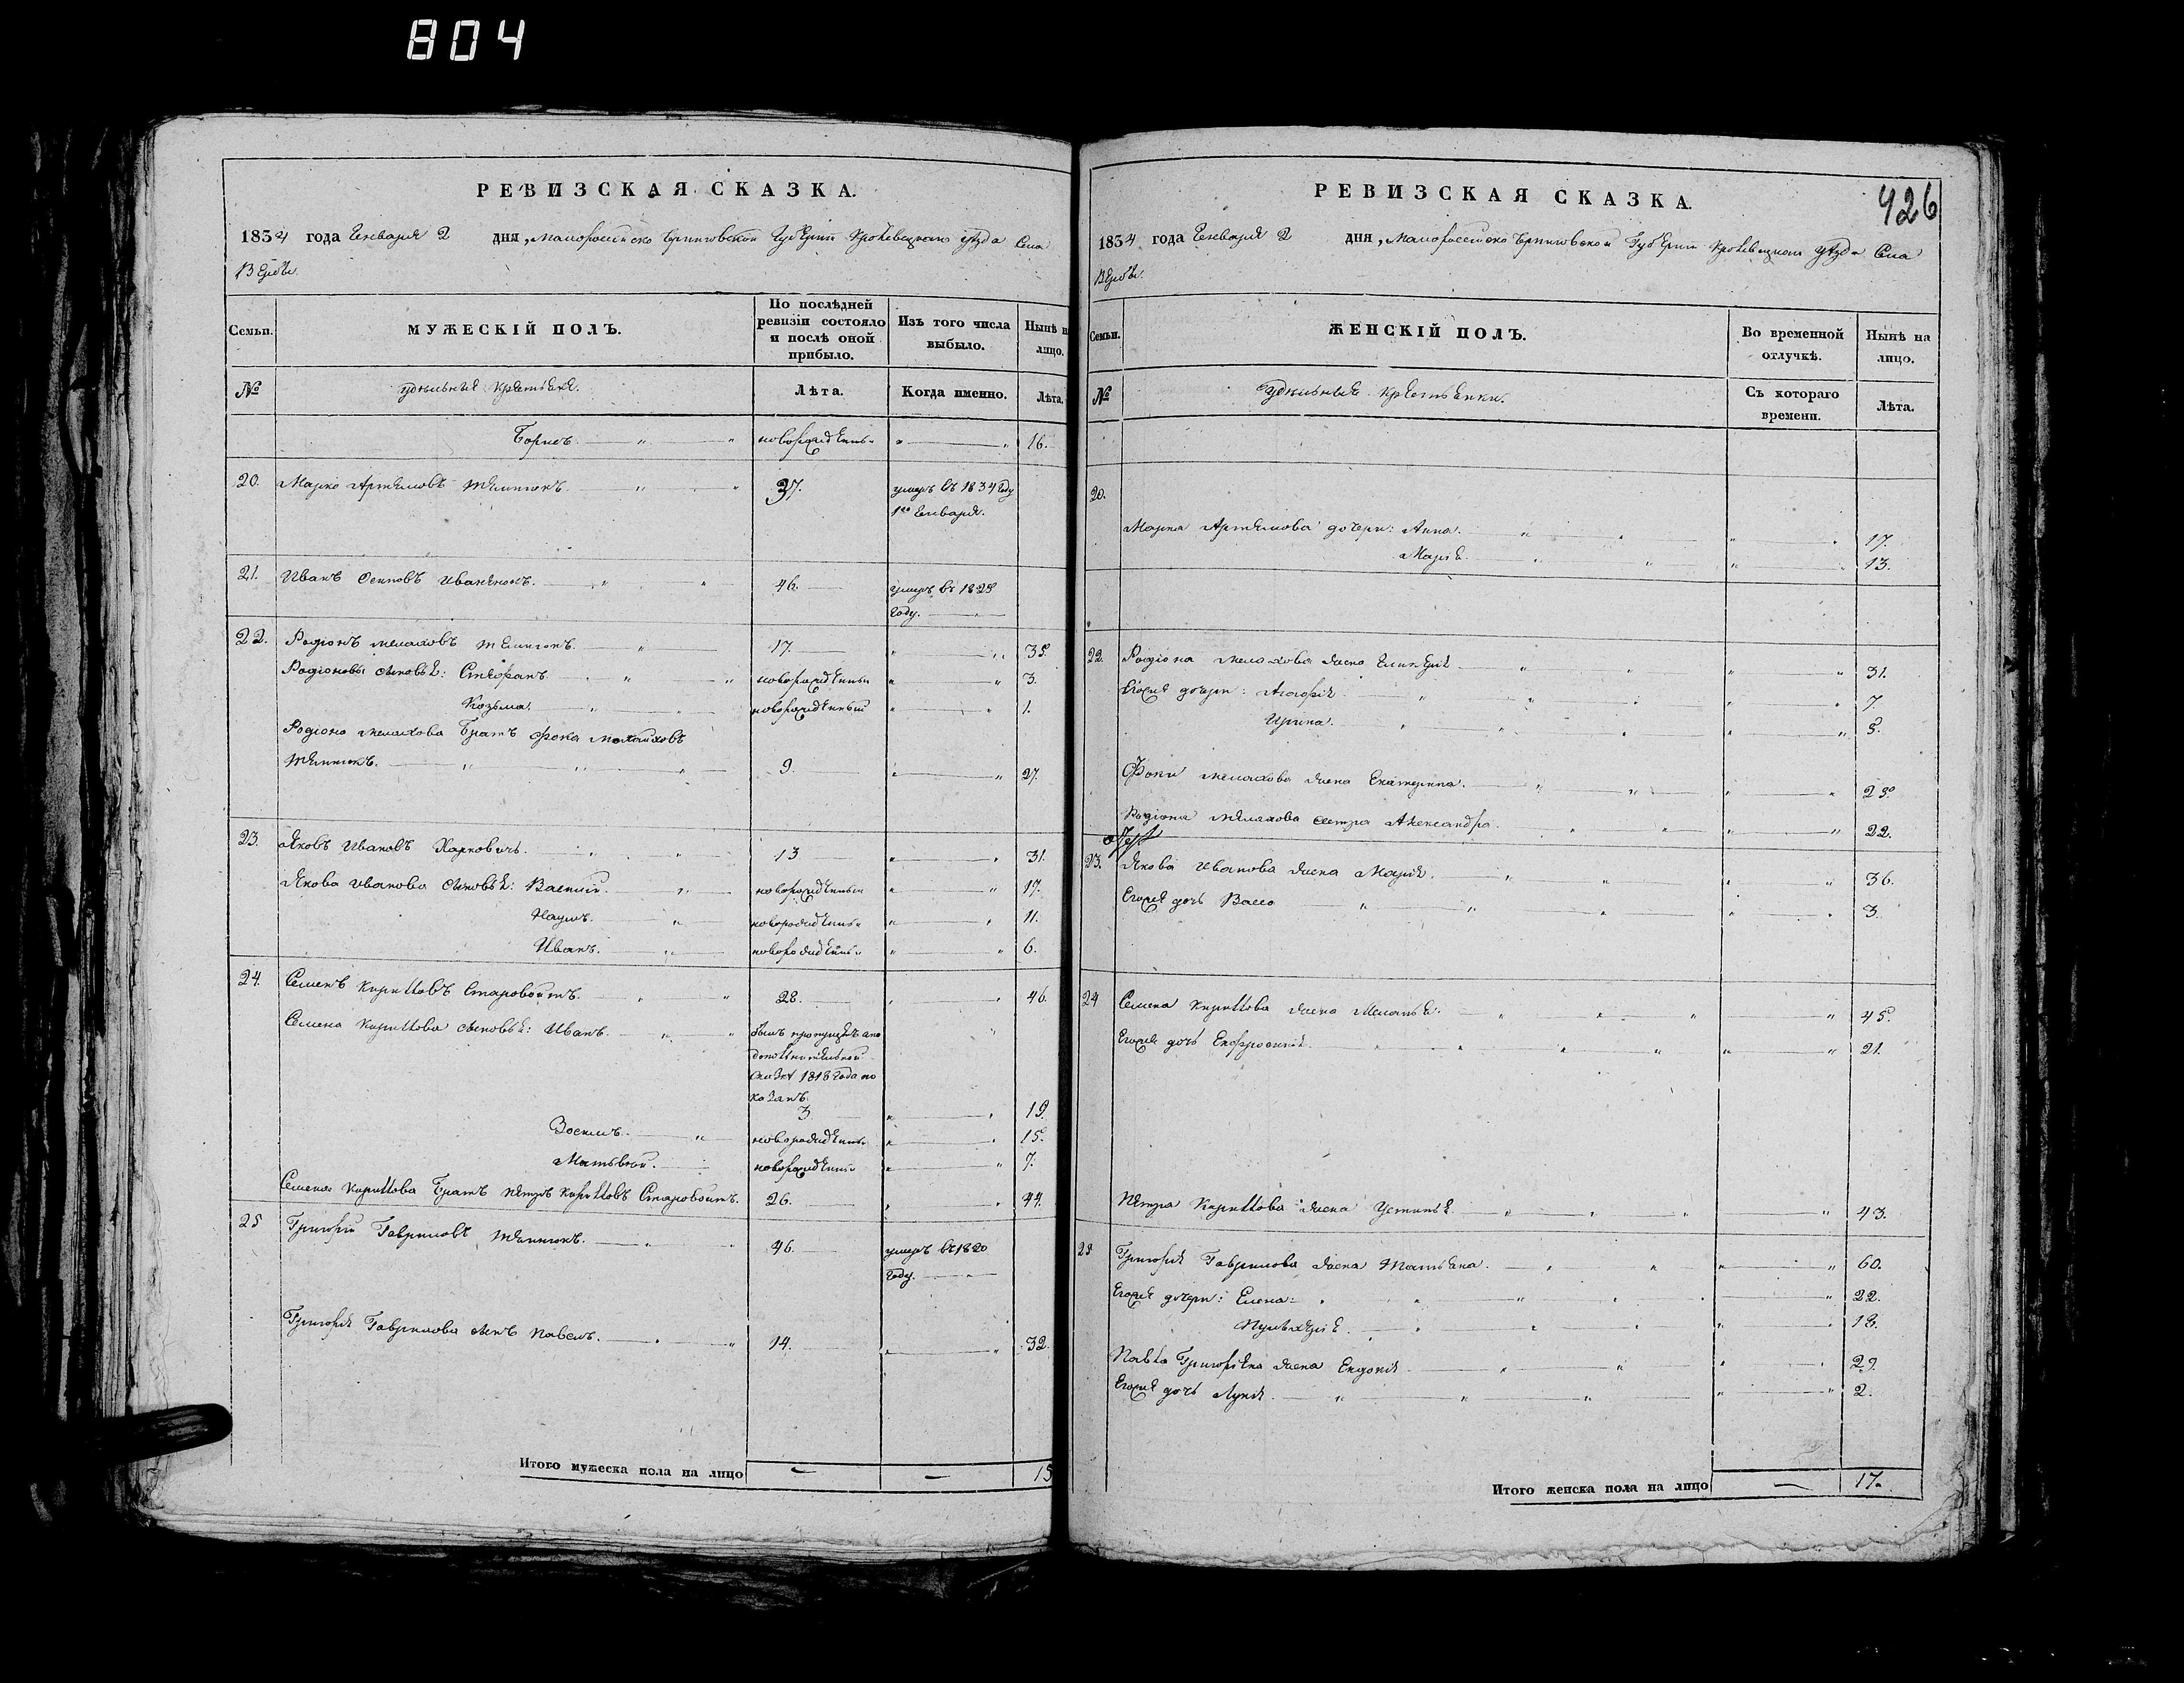 804
РЕВИЗСКАЯ СКАЗКА.
1834 года Генваря 2 дня, Малороссийско Черниговской Губернии Кролевецкого уезда Села
Вербы.
Семьи. МУЖЕСКІЙ ПОЛЪ. По послѣдней ревизіи состояло и послѣ оной прибыло. Изъ того числа выбыло. Нынѣ на лицо.
№ удельные крестьяне. Лѣта. Когда именно. Лѣта.
Борисъ. новорожденный 16.
20. Марко Артемовъ 37. умеръ въ 1834 году
1го Генваря.
21. Иванъ Осиповъ Иваненокъ. 46. умеръ въ 1828
году.
22. Родіонъ Малаховъ 17. 35.
Родіоновы сыновья: Стефанъ новорожденный 3.
Козьма. новорожденный 1.
Родіона Малахова Братъ Фока Малаховъ
9. 27.
23. Яковъ Ивановъ Харковичъ. 13 31.
Якова Иванова сыновья: Василий. новорожденный 17.
Наумъ. новорожденный 11.
Иванъ. новорожденный 6.
24. Семенъ Кириловъ Старовойтъ. 28. 46.
Семена Кирилова сыновья: Иванъ. былъ пропущенъ а по
дополнительной
сказке 1818 года по
казанъ.
3 19.
Зосимъ. новорожденный 15.
Матьвей. новорожденный 7.
Семена Кирилова Братъ Петръ Кириловъ Старовойтъ. 26. 44.
25 Григорій Гавриловъ 46. умеръ въ 1820
году.
Григорія Гаврилова сынъ Павелъ. 14. 32.
Итого мужеска пола на лицо — — 15
426
РЕВИЗСКАЯ СКАЗКА.
1834 года Генваря 2 дня, Малороссийско Черниговской Губернии Кролевецкого уезда Села
Вербы.
Семьи. ЖЕНСКІЙ ПОЛЪ. Во временной отлучкѣ. Нынѣ на лицо.
№ удельные крестьянки. Съ котораго времени. Лѣта.
20.
Марка Артемова дочери: Анна. 17.
Марія. 13.
22. Родіона Малахова жена Гликерія 31.
Егожъ дочери: 7
Ирина. 5.
Фоки Малахова жена Екатерина. 25.
Родіона Малахова сестра Александра. 22.
23. Якова Иванова жена Марія. 36.
Егожъ дочь Васса 3.
24 Семена Кирилова жена Меланья. 45.
Егожъ дочь Ефросинія. 21.
Петра Кирилова жена Устинья. 43.
25 Григорія Гаврилова жена Татьяна. 60.
Егожъ дочери: Елена: 22.
Пульхерія. 18.
Павла Григорьева жена Евдокія 29.
Егожъ дочь 2.
Итого женска пола на лицо — 17.